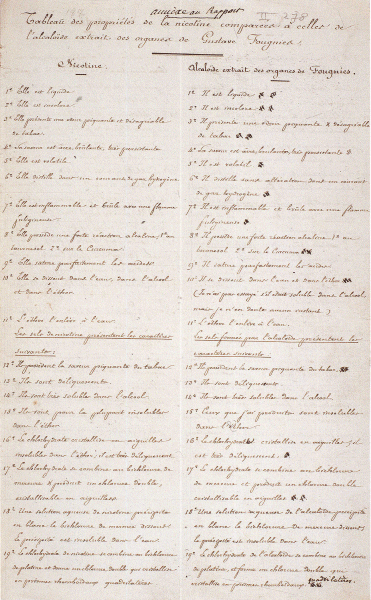 annexe au Rapport
Tableau des propriétés de la nicotine comparées à celles de
l'alcaloïde extrait des organes de Gustave Fougnies.
Nicotine.
1° Elle est liquide
2° Elle est incolore
3° Elle présente une odeur piquante et désagréable
de tabac
4° La saveur est âcre, brûlante, très persistante
5° Elle est volatile
6° Elle distille dans un courant de gaz hydrogène
7° Elle est inflammable et brûle avec une flamme
fuligineuse
8° Elle possède une forte réaction alcaline, 1° au
tournesol 2° sur le Curcuma
9° Elle sature parfaitement les acides
10° Elle se dissout dans l'eau, dans l'alcool
et dans l'éther
11° L'éther l'enlève à l'eau.
Les sels de nicotine présentent les caractères
suivants:
12° Ils possèdent la saveur piquante du tabac
13° Ils sont déliquescents
14° Ils sont très solubles dans l'alcool
15° Ils sont pour la plupart insolubles
dans l'éther
16° Le chlorhydrate cristallise en aiguilles
insolubles dans l'éther; il est très déliquescent.
17° Le chlorhydrate se combine au bichlorure
de mercure & produit un chlorure double,
cristallisable en aiguilles
18° Une solution aqueuse de nicotine précipite
en blanc le bichlorure de mercure dissout
le précipité est insoluble dans l'eau.
19° Le chlorhydrate de nicotine se combine au bichlorure
de platine et donne un chlorure double qui cristallise
en prismes rhomboïdaux quadrilatères
Alcaloïde extrait des organes de Fougnies.
1° Il est liquide
2° Il est incolore
3° Il présente une odeur piquante & désagréable
de tabac
4° La saveur est âcre, brûlante, très persistante
5° Il est volatil
6° Il distille sans altération dans un courant
de gaz hydrogène
7° Il est inflammable et brûle avec une flamme
fuligineuse
8° Il possède une forte réaction alcaline 1° au
tournesol 2° sur le Curcuma
9° Il sature parfaitement les acides
10° Il se dissout dans l'eau et dans l'éther
(Je n'ai pas essayé s'il était soluble dans l'alcool,
mais je n'en doute aucun instant)
11° L'éther l'enlève à l'eau.
Les sels formés par l'alcaloïde présentent les
caractères suivants.
12° Ils possèdent la saveur piquante du tabac
13° Ils sont déliquescents
14° Ils sont très solubles dans l'alcool
15° Ceux que j'ai produits sont insolubles
dans l'éther
16° Le chlorhydrate cristallise en aiguilles; il
est très déliquescent
17° Le chlorhydrate se combine au bichlorure
de mercure et produit un chlorure double
cristallisable en aiguilles
18° Une solution aqueuse de l'alcaloïde précipite
en blanc le bichlorure de mercure dissout,
le précipité est insoluble dans l'eau.
19° Le chlorhydrate de l'alcaloïde se combine au bichlorure
de platine, et forme un chlorure double qui
cristallise en prismes rhomboïdaux quadrilatères.